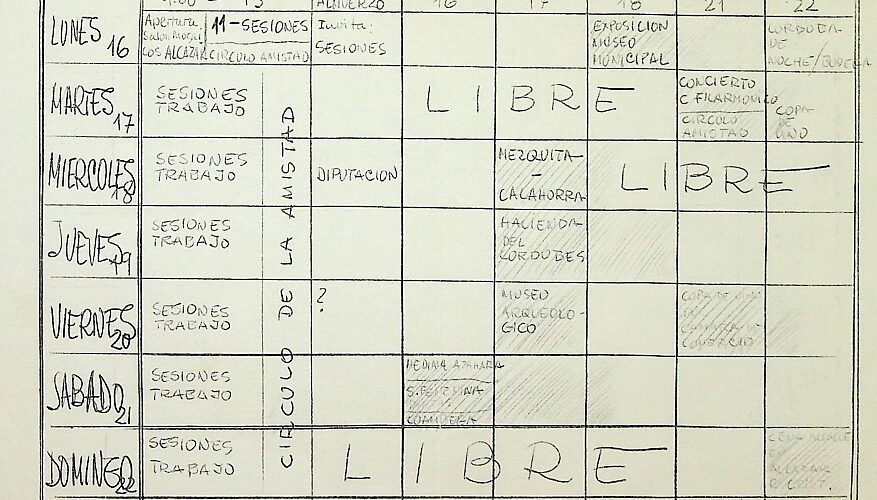 ALMUERZO 16 17 18 21 22
LUNES 16
Apertura
11-SESIONES
LOS ALCAZAR CIRCULO AMISTAD
Invita:
SESIONES
EXPOSICION
MUSEO
MUNICIPAL
CORDOBA
DE
NOCHE/BODEGA
MARTES 17
SESIONES
TRABAJO
LIBRE
CONCIERTO
C FILARMONICO
CIRCULO
AMISTAD
COPA
DE
VINO
MIERCOLES 18
SESIONES
TRABAJO
DIPUTACION
MEZQUITA
-
CALAHORRA
LIBRE
JUEVES 19
SESIONES
TRABAJO
HACIENDA
DEL
CORDUBES
VIERNES 20
SESIONES
TRABAJO
?
MUSEO
ARQUEOLO-
GICO
COPA DE VINO
EN
CAMARA DE
COMERCIO
SABADO 21
SESIONES
TRABAJO
MEDINA AZAHARA
COMIDERA
DOMINGO 22
SESIONES
TRABAJO
LIBRE
EN
ALCAZAR
CIRCULO DE LA AMISTAD